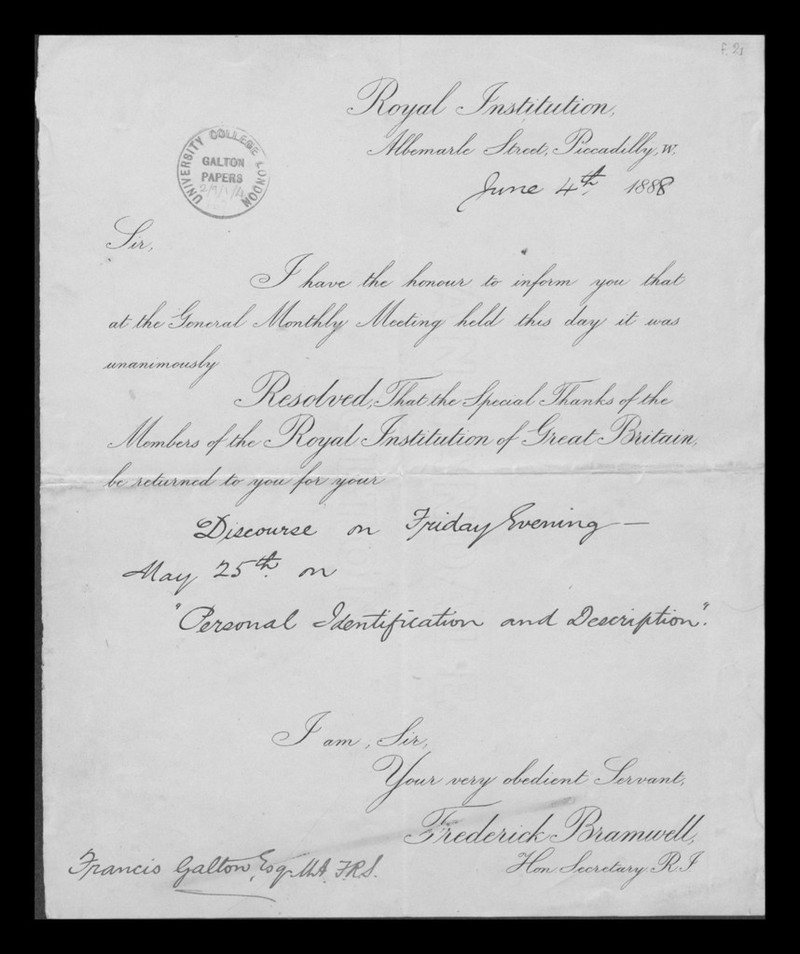 f. 2r
Royal Institution,
Albemarle Street, Piccadilly, W.
June 4th 1888
UNIVERSITY COLLEGE LONDON
GALTON
PAPERS
Sir,
I have the honour to inform you that
at the General Monthly Meeting held this day it was
unanimously
Resolved, That the Special Thanks of the
Members of the Royal Institution of Great Britain,
be returned to you for your
Discourse on Friday Evening —
May 25th on
"Personal Identification and Description".
I am, Sir,
Your very obedient Servant,
Frederick Bramwell,
Hon. Secretary R.I.
Francis Galton, Esq. M.A. F.R.S.